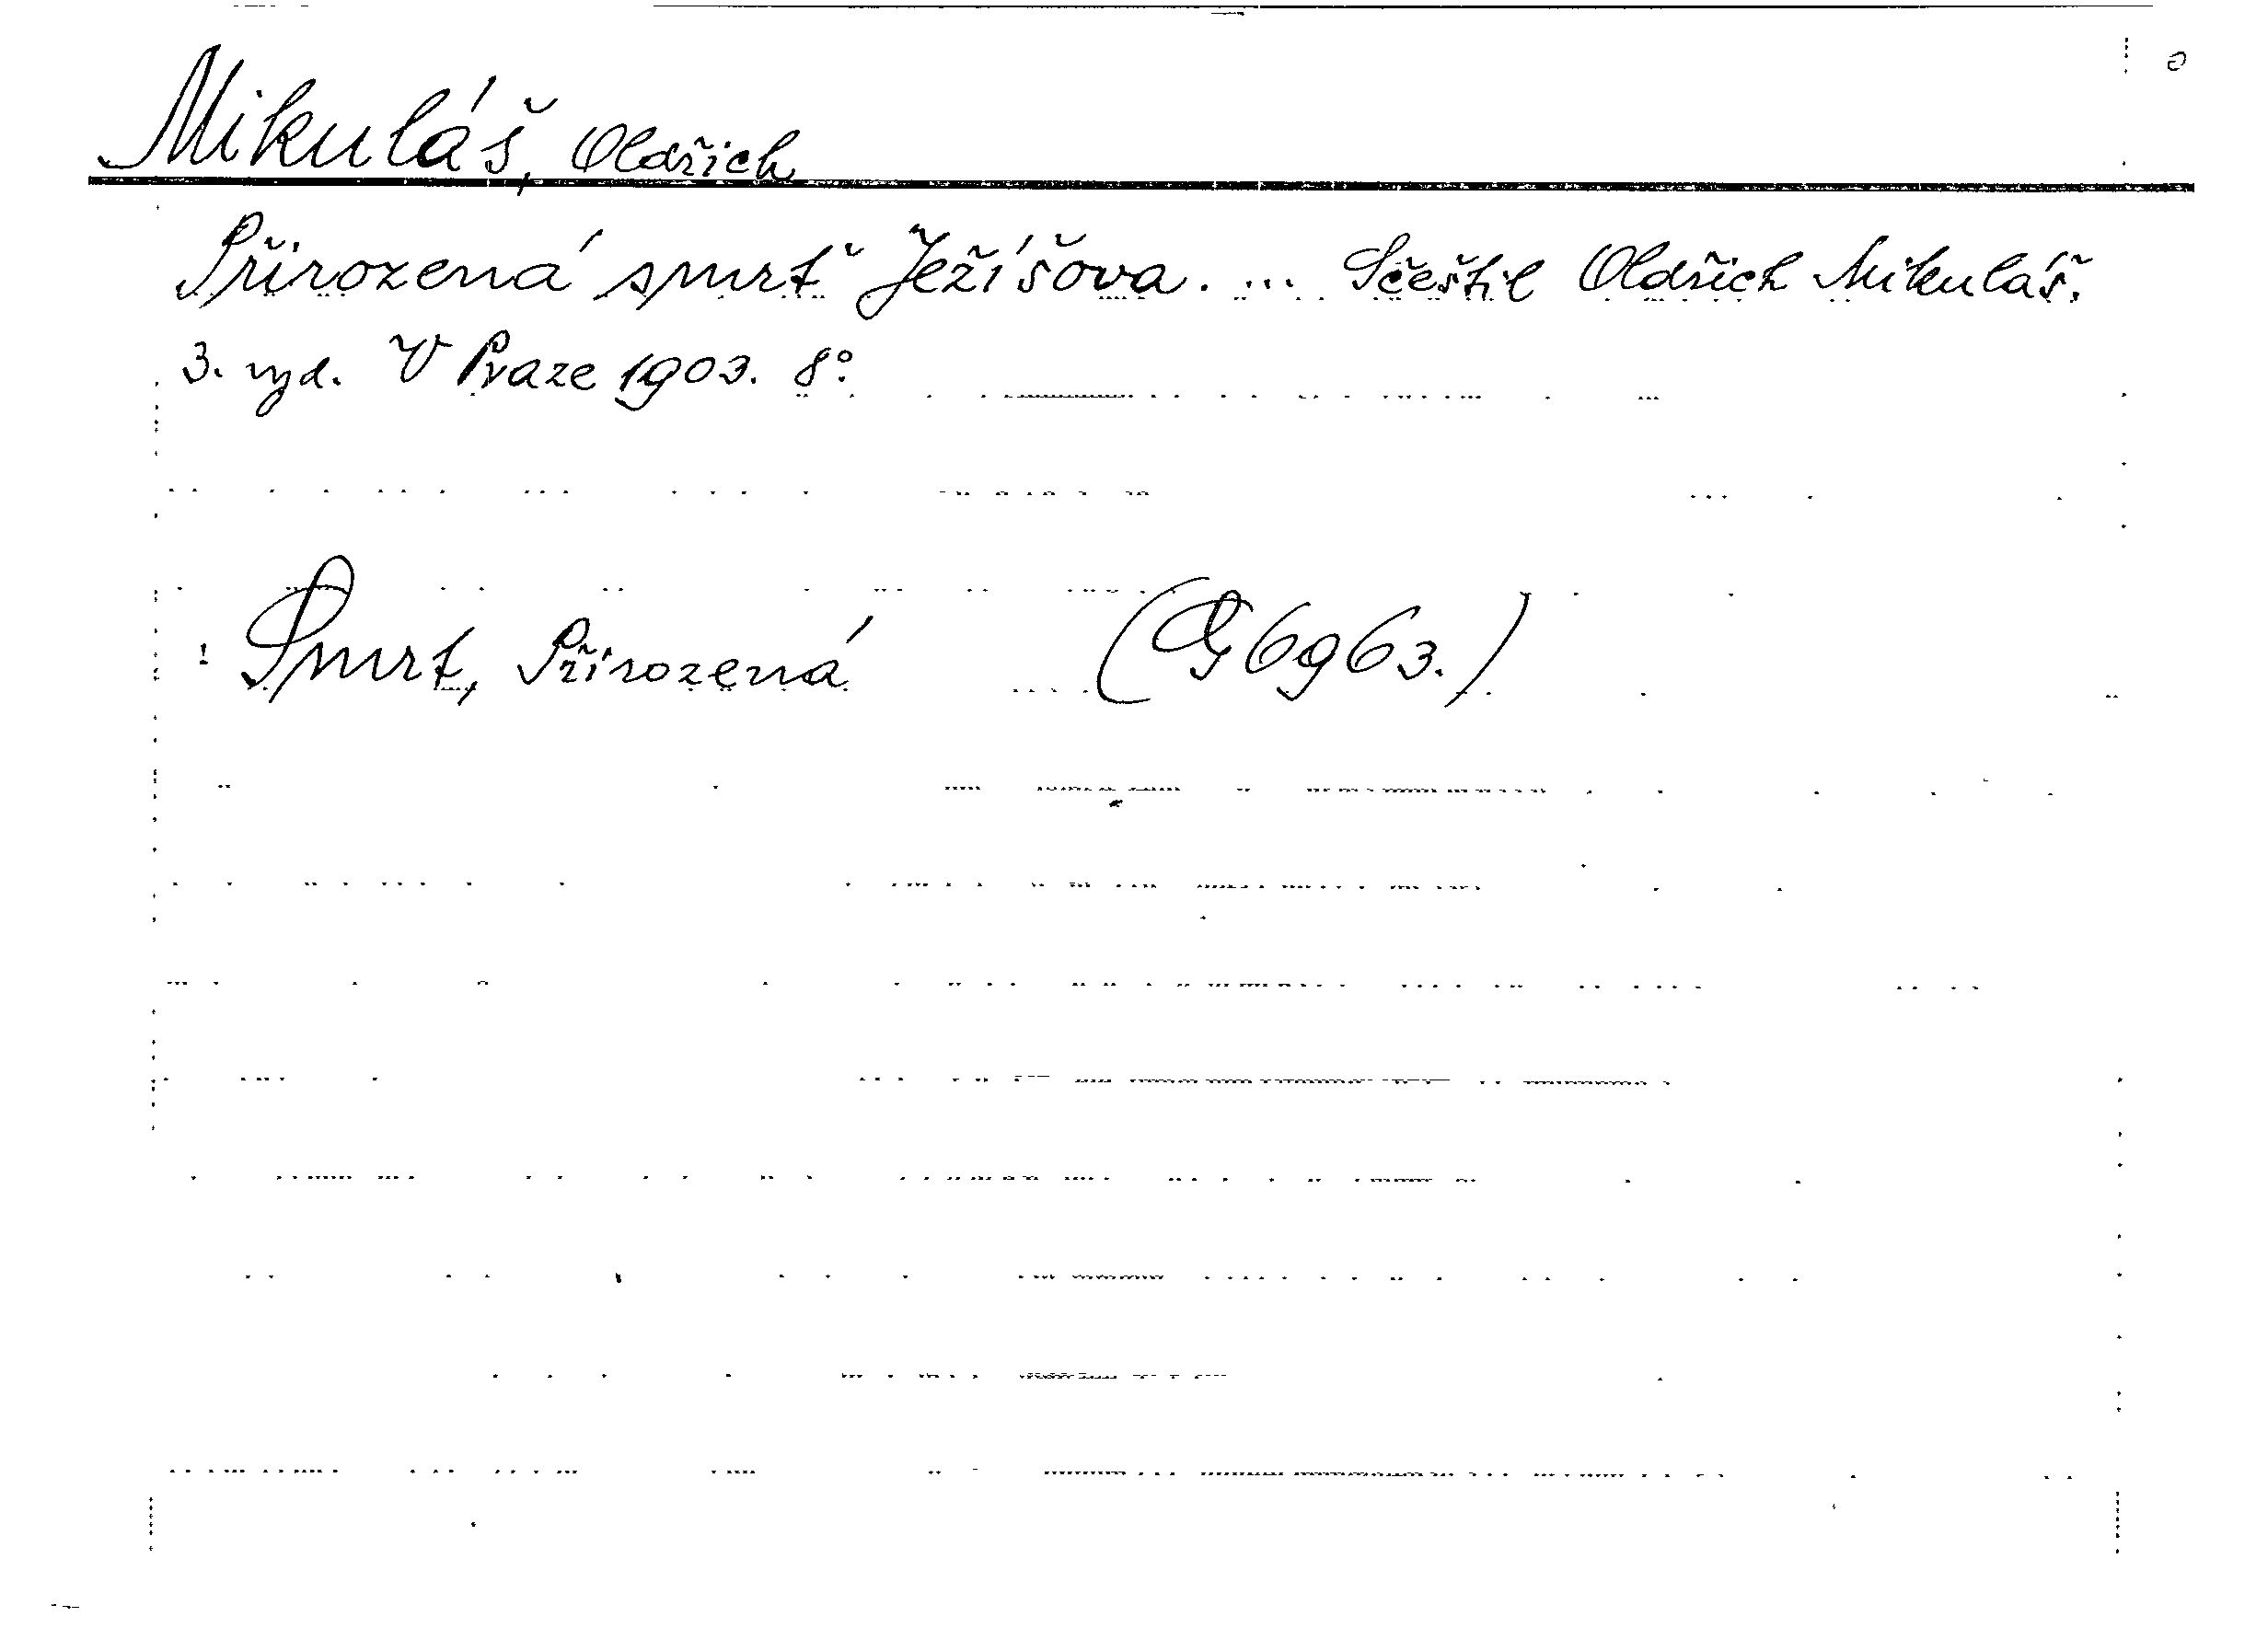 Mikuláš, Oldřich
Přirozená smrť Ježíšova. ... Sčeštil Oldřich Mikuláš.
3. vyd. V Praze 1903. 8°.
Smrt, Přirozená (G 6963.)